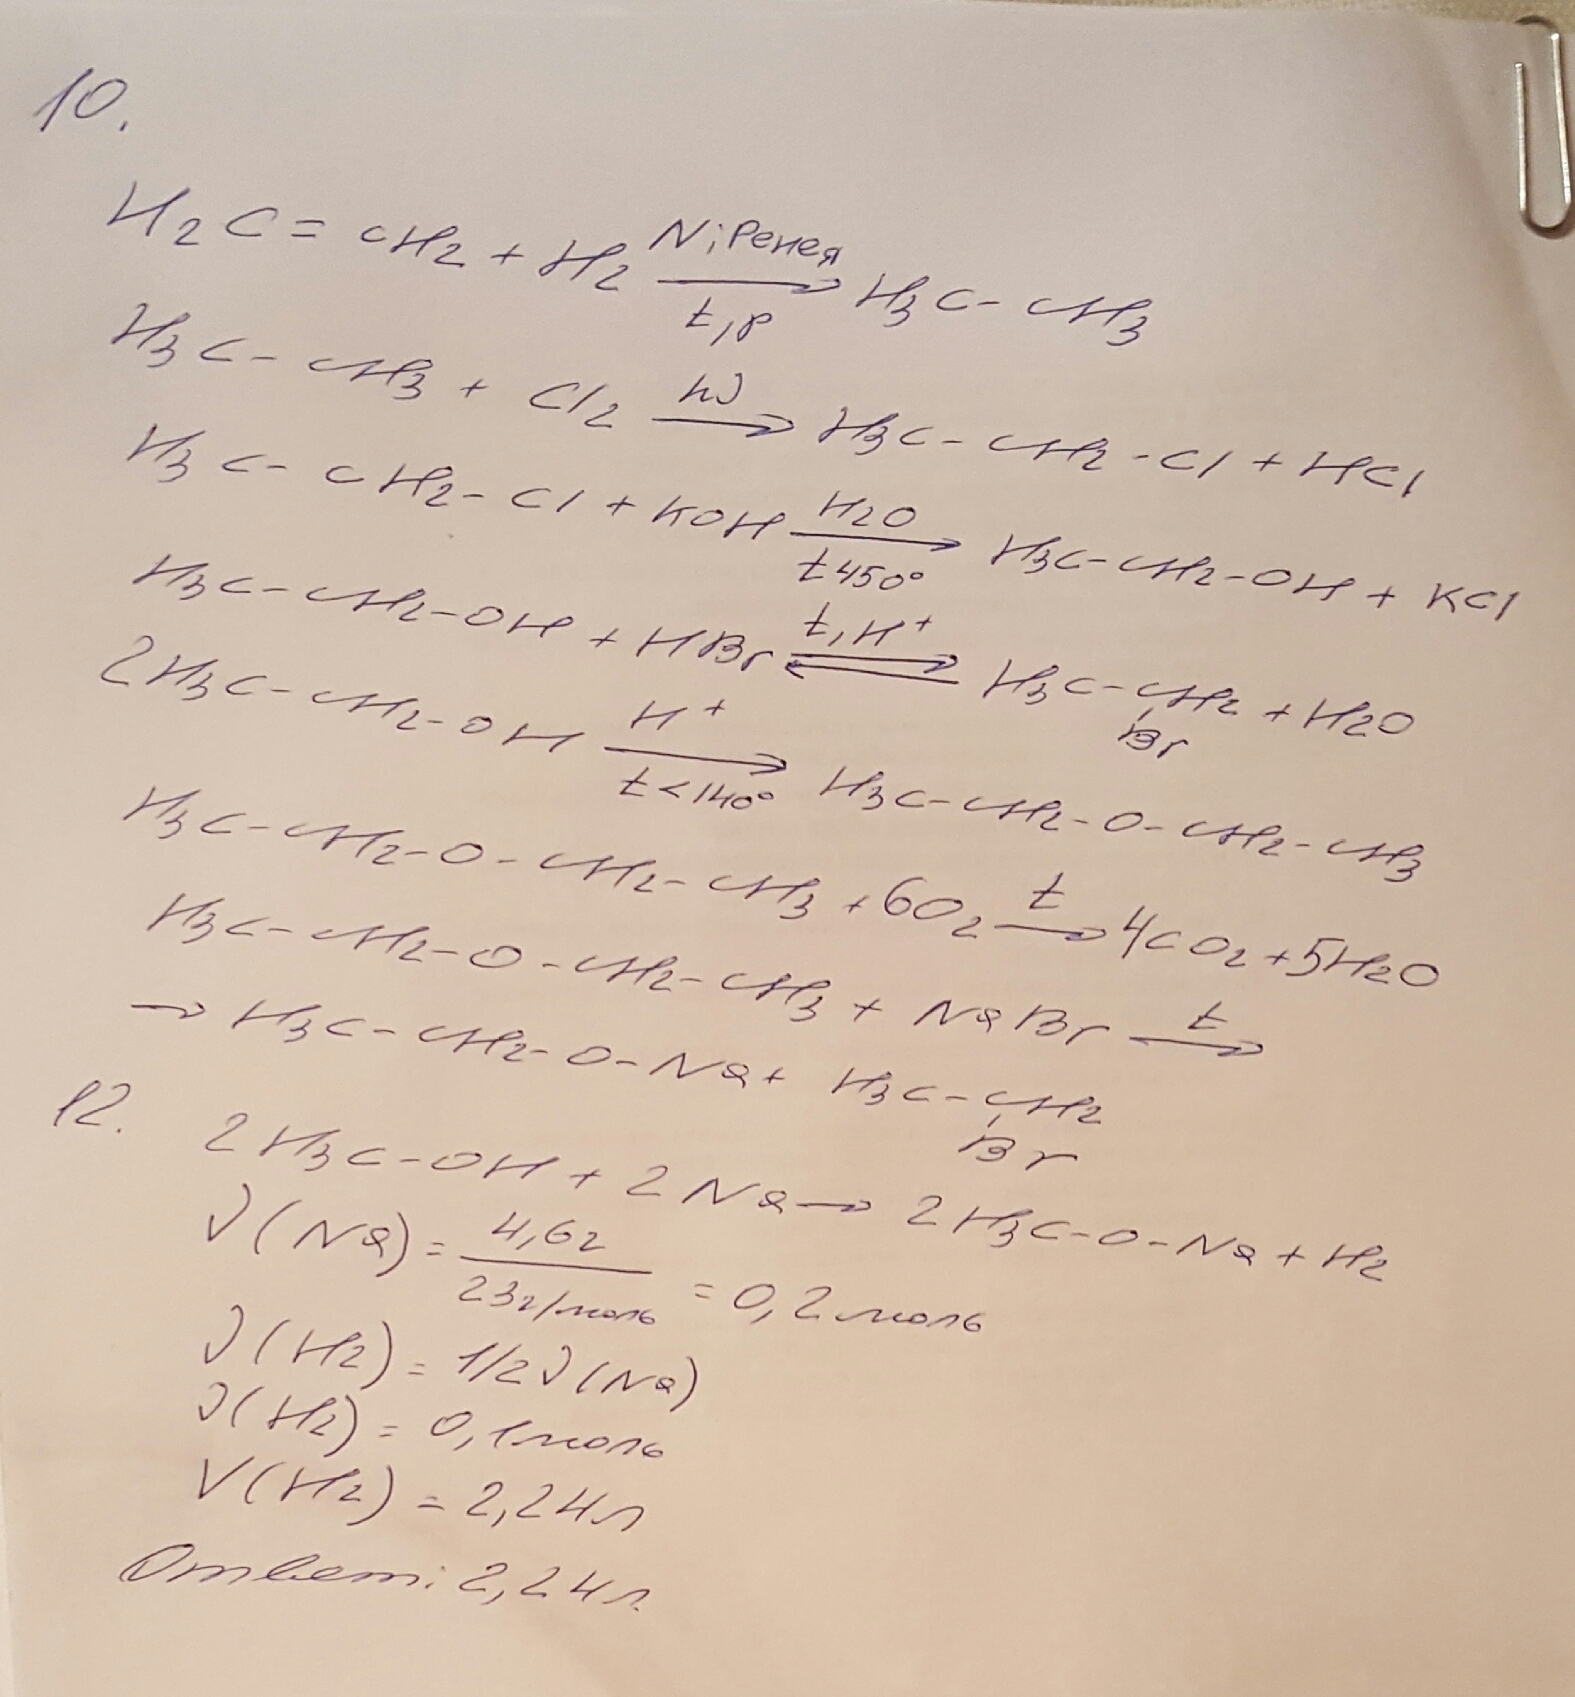 10.
H2C=CH2+H2 Ni Ренея t,p → H3C-CH3
H3C-CH3+Cl2 hν → H3C-CH2-Cl+HCl
H3C-CH2-Cl+KOH H2O t450° → H3C-CH2-OH+KCl
H3C-CH2-OH+HBr t,H+ ⇄ H3C-CH2+H2O
Br
2H3C-CH2-OH H+ t<140° → H3C-CH2-O-CH2-CH3
H3C-CH2-O-CH2-CH3+6O2 t → 4CO2+5H2O
H3C-CH2-O-CH2-CH3+NaBr t →
→ H3C-CH2-O-Na+H3C-CH2
Br
12. 2H3C-OH+2Na → 2H3C-O-Na+H2
ν(Na)= 4,6г / 23г/моль = 0,2моль
ν(H2)=1/2ν(Na)
ν(H2)=0,1моль
V(H2)=2,24л
Ответ: 2,24л.